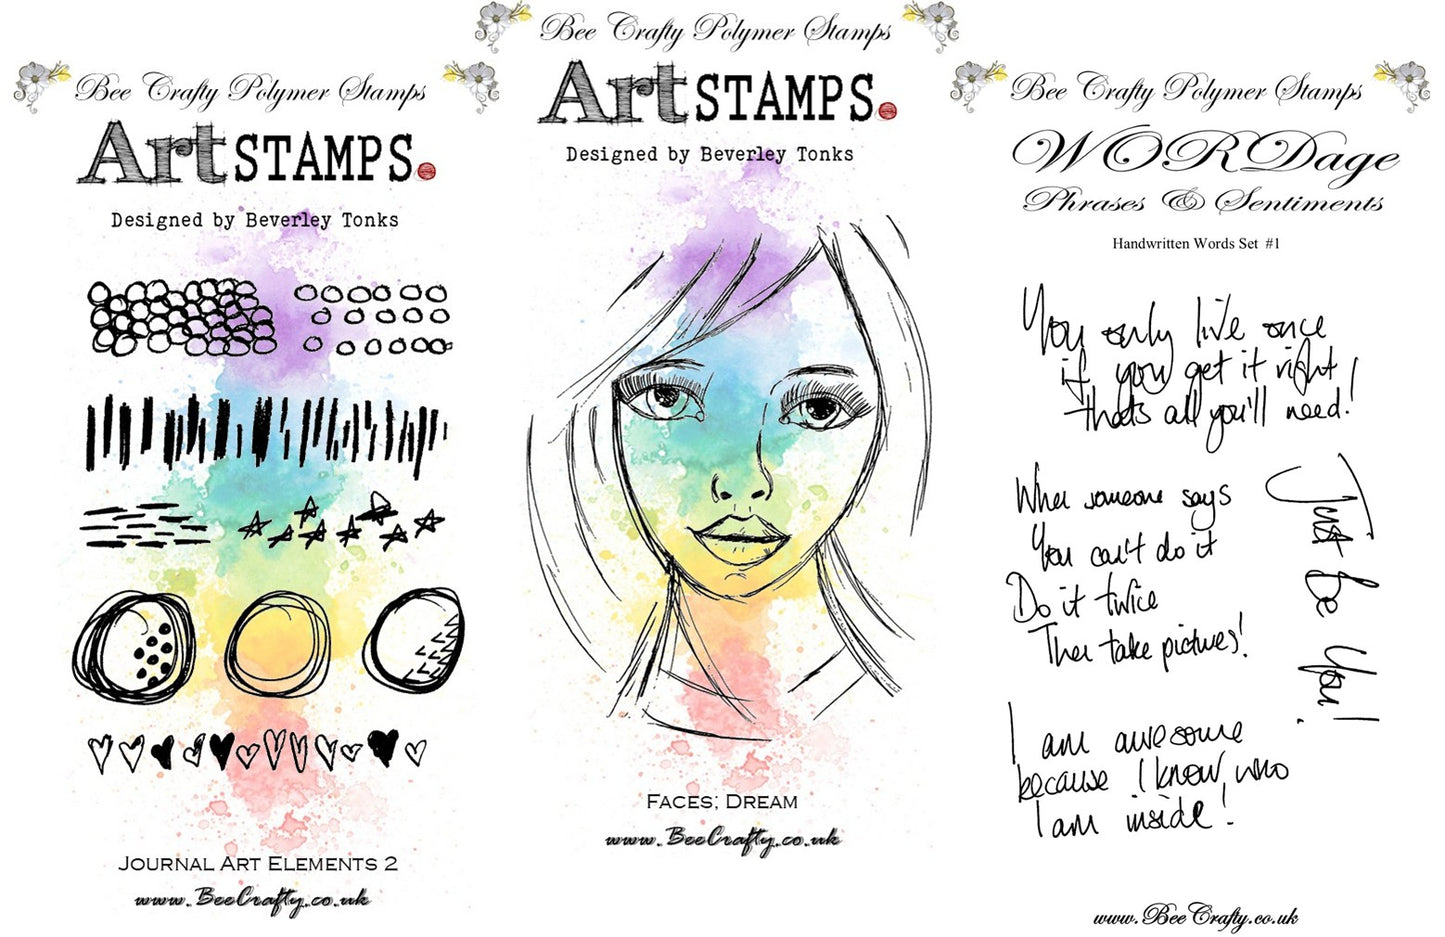 Bee Crafty Polymer Stamps
Art STAMPS.
Designed by Beverley Tonks
JOURNAL ART ELEMENTS 2
www.BeeCrafty.co.uk
Bee Crafty Polymer Stamps
Art STAMPS.
Designed by Beverley Tonks
FACES; DREAM
www.BeeCrafty.co.uk
Bee Crafty Polymer Stamps
WORDage
Phrases & Sentiments
Handwritten Words Set #1
You only live once
if you get it right
thats all you'll need!
When someone says
You can't do it
Do it twice
Then take pictures!
Just Be You!
I am awesome
because I know who
I am inside!
www.BeeCrafty.co.uk